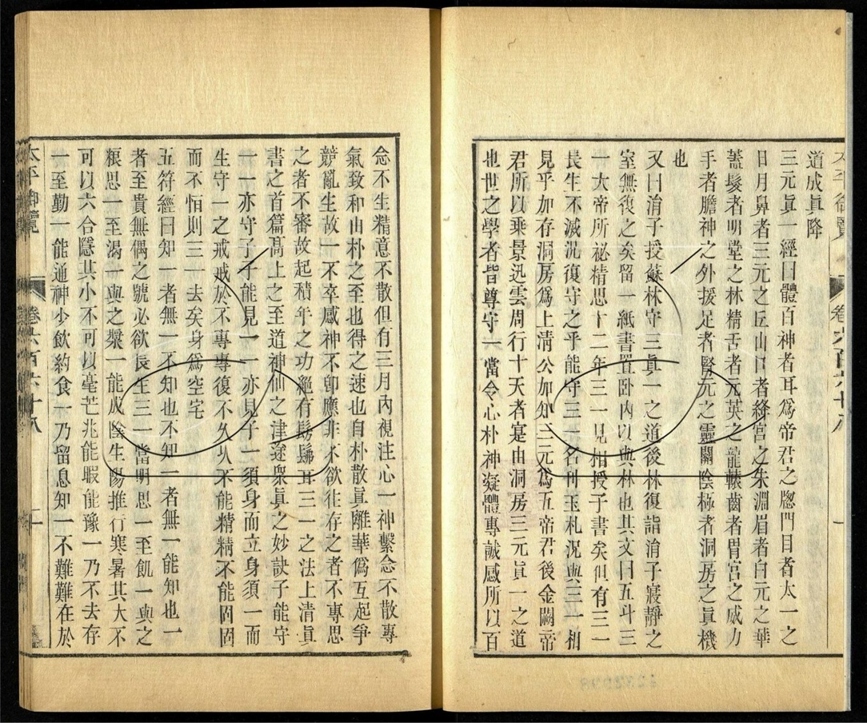 太平御覽
卷六百六十八
一
道成眞降
三元眞一經曰體百神者耳爲帝君之牕門目者太一之
日月鼻者三元之丘山口者絳宮之朱淵眉者白元之華
蓋髮者明堂之林精舌者元英之龍轅齒者胃宮之威力
手者膽神之外援足者腎元之靈關陰極者洞房之眞機
也
又曰涓子授蘇林守三眞一之道後林復詣涓子寢靜之
室無復之矣留一紙書置卧內以與林也其文曰五斗三
一大帝所祕精思十二年三一見相授子書矣但有三一
長生不滅況復守之乎能守三一名刊玉札況與三一相
見乎加存洞房爲上淸公加知三元爲五帝君後金闕帝
君所以乘景迅雲周行十天者寔由洞房三元眞一之道
也世之學者皆尊守一當令心朴神凝體專誠感所以百
念不生精意不散但有三月內視注心一神繫念不散專
氣致和由朴之至也得之速也自朴散眞離華僞互起爭
競亂生故一不卒感神不卽應非不欲往存之者不專思
之者不審故起積年之功纔有髣髴耳三一之法上淸眞
書之首篇高上之至道神仙之津逕衆眞之妙訣子能守
一一亦守子子能見一一亦見子一須身而立身須一而
生守一之戒戒於不專專復不久久不能精精不能固固
而不恒則三一去矣身爲空宅
五符經曰知一者無一不知也不知一者無一能知也一
者至貴無偶之號必欲長生三一當明思一至飢一與之
糧思一至渴一與之漿一能成陰生陽推行寒暑其大不
可以六合隱其小不可以毫芒兆能暇能豫一乃不去存
一至勤一能通神少飮約食一乃留息知一不難難在於
太平御覽
卷六百六十八
二